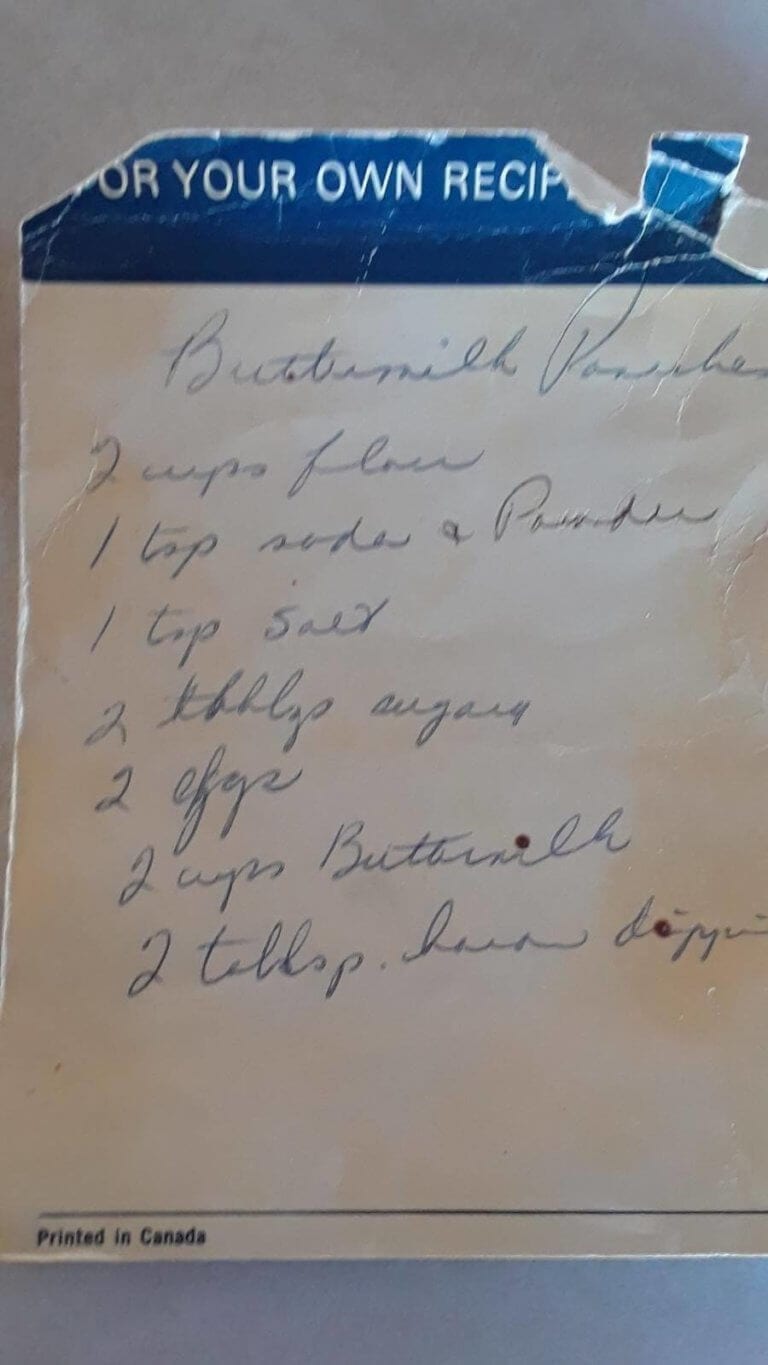 OR YOUR OWN RECIP
Buttermilk Pancakes
2 cups flour
1 tsp soda & Powder
1 tsp salt
2 tbblzs sugar
2 eggs
2 cups Buttermilk
2 tablsp. bacon drippi
Printed in Canada